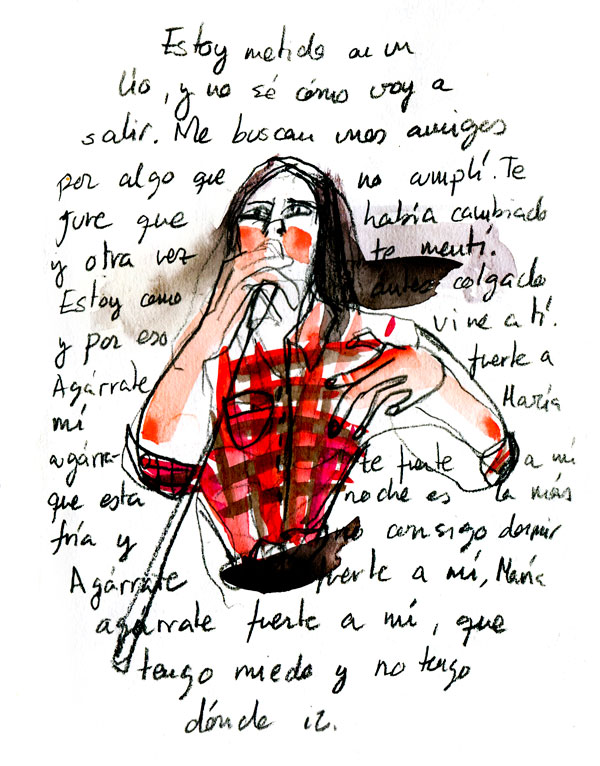 Estoy metido en un
lío, y no sé cómo voy a
salir. Me buscan unos amigos
por algo que no cumplí. Te
juré que había cambiado
y otra vez te mentí.
Estoy como antes colgado
y por eso vine a tí.
Agárrate fuerte a
mí María
agárra- te fuerte a mí
que esta noche es la más
fría y no consigo dormir
Agárrate fuerte a mí, María
agárrate fuerte a mí, que
tengo miedo y no tengo
dónde ir.